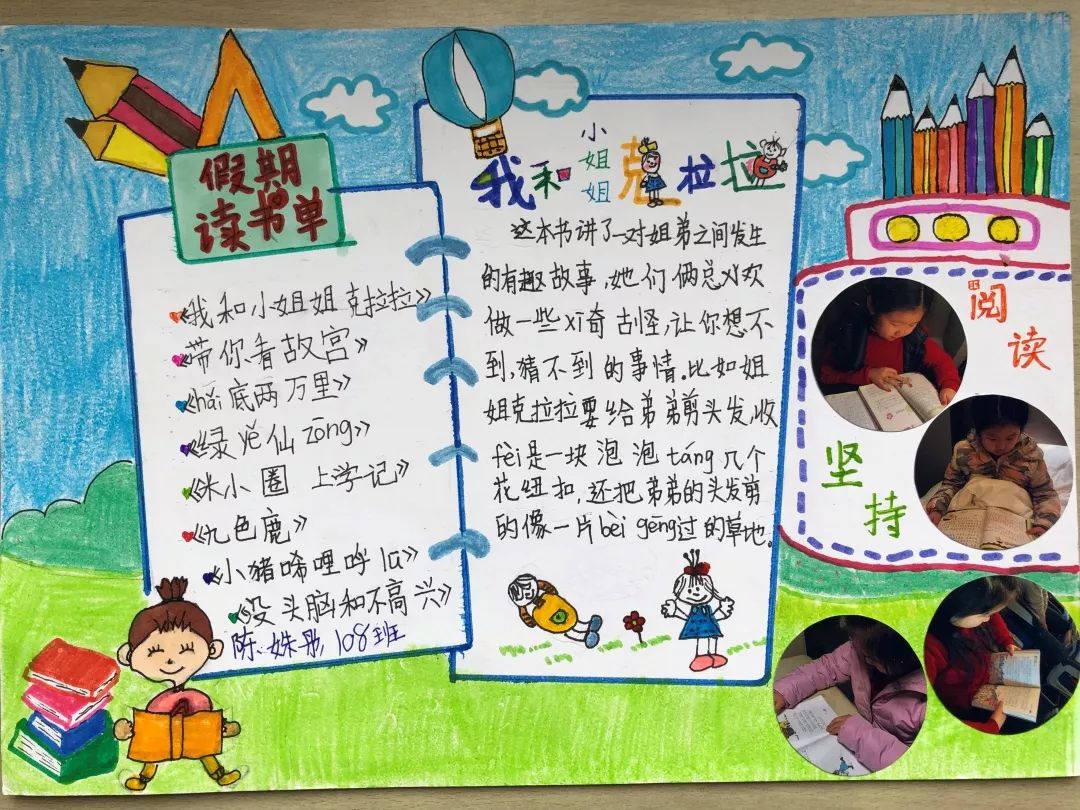 假期
读书单
《我和小姐姐克拉拉》
《带你看故宫》
《hǎi底两万里》
《绿yě仙zōng》
《米小圈 上学记》
《九色鹿》
《小猪唏哩呼lū》
《没头脑和不高兴》
陈姝彤 108班
我和小姐姐克拉拉
这本书讲了一对姐弟之间发生
的有趣故事,她们俩总xǐ欢
做一些xī奇古怪,让你想不
到,猜不到的事情.比如姐
姐克拉拉要给弟弟剪头发,收
fèi是一块泡泡táng几个
花纽扣,还把弟弟的头发剪
的像一片bèi gēng过的草地.
阅读
坚持